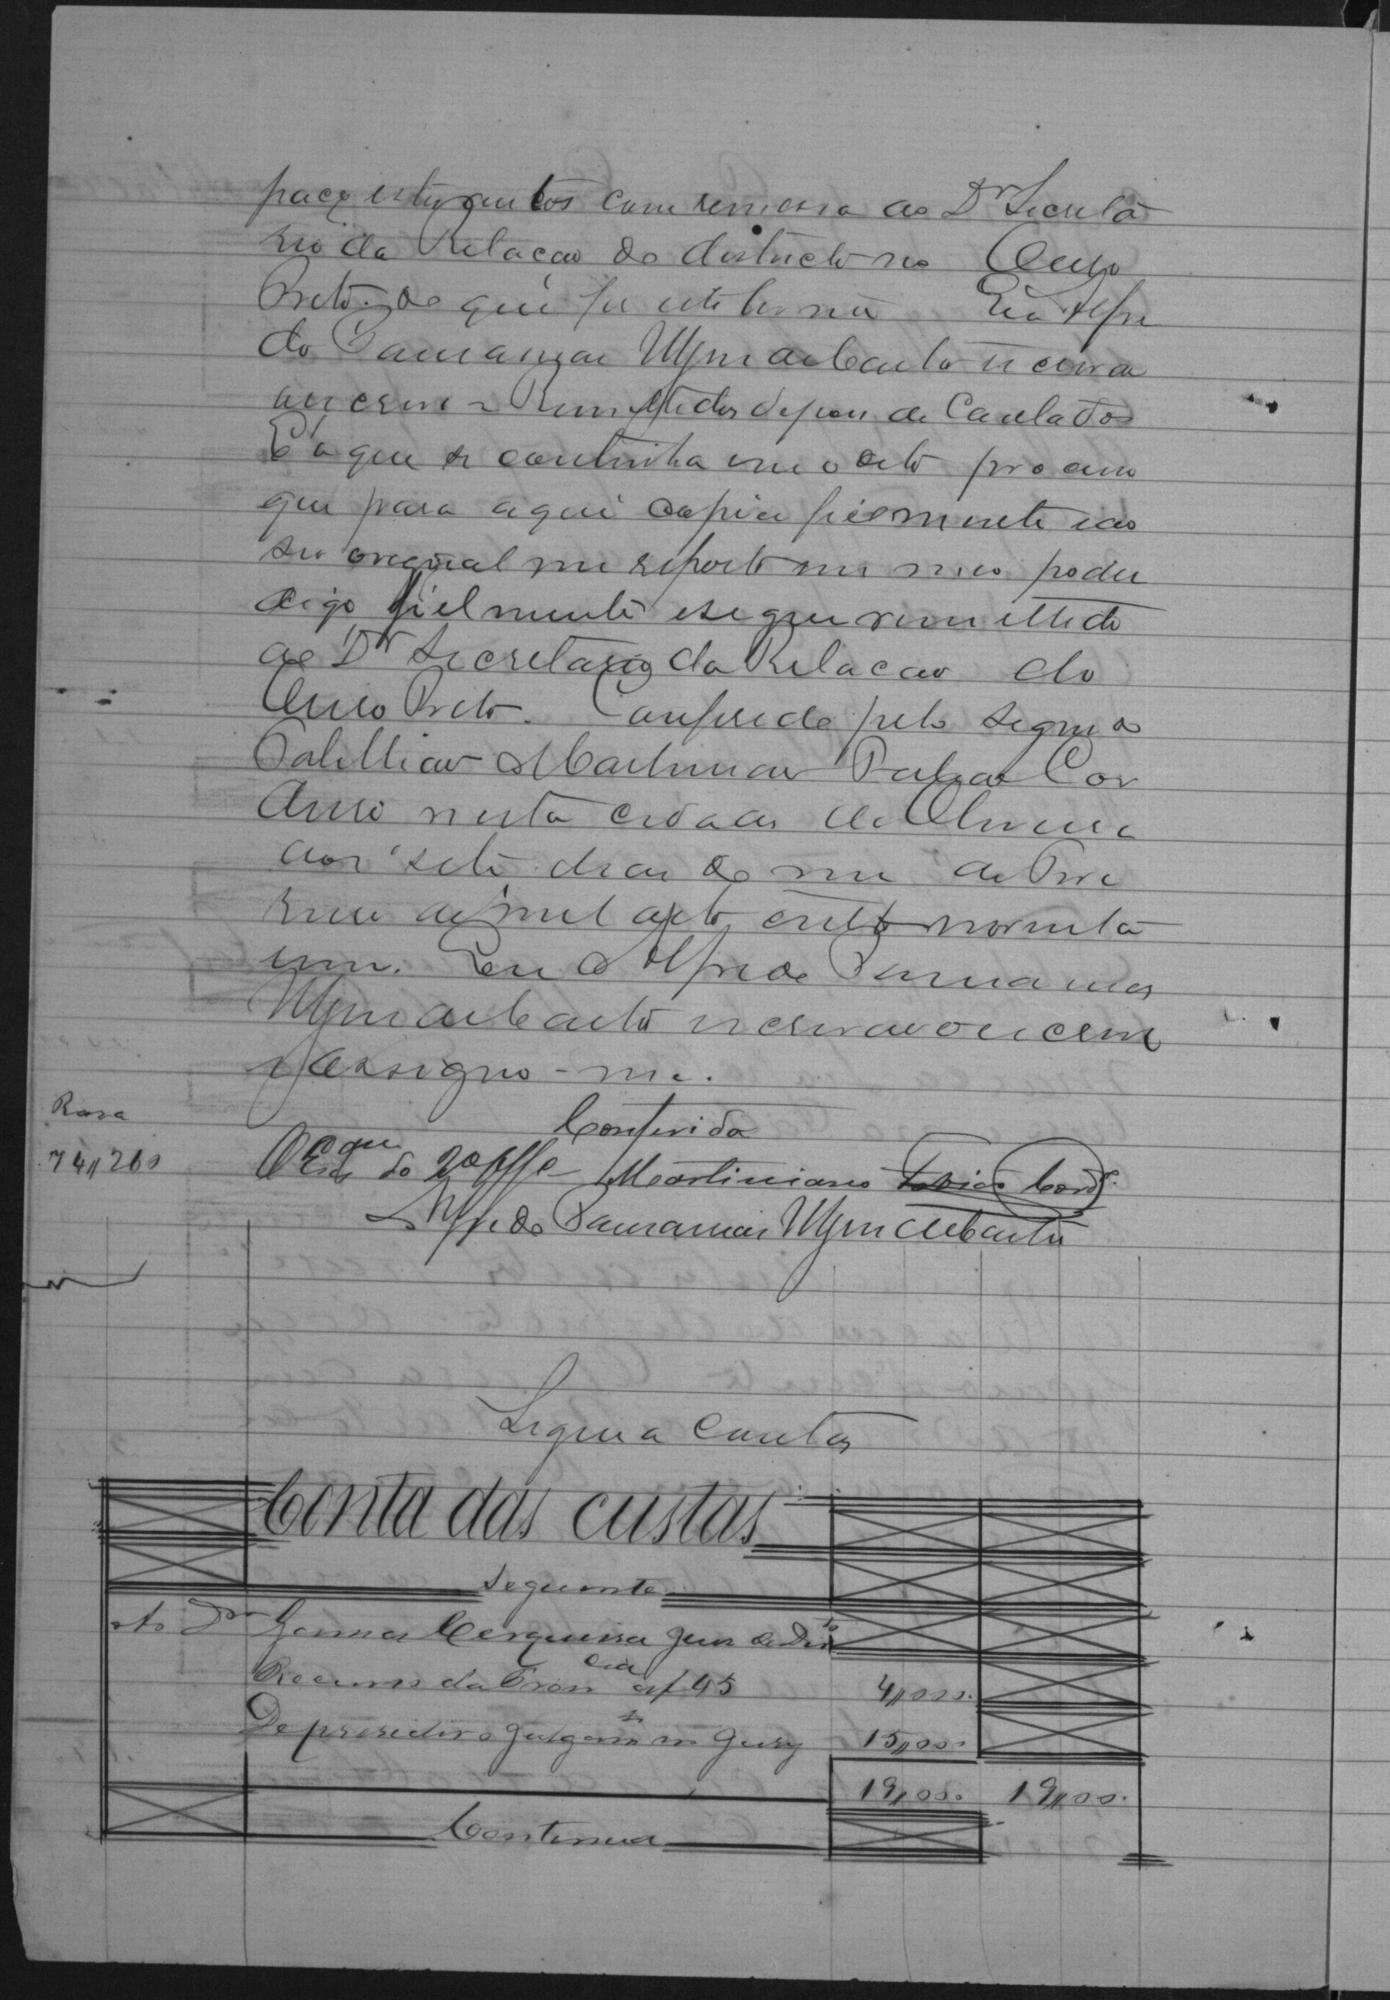 faço estes autos com remessa ao Dr Secreta
rio da Relacao do districto no Ouro
Preto. do que fis este termo Eu Alfre
do
escrevi Remettidos depois de Contados
É o que se continha em o dito proceso
que para aqui copiei fielmente e ao
seu original me reporto em meo poder
digo fielmente e segue remettido
ao Dr Secretario da Relacao do
Ouro Preto. Conferido pelo segundo
Tabelliao Martiniano Tobias Cor
deiro nesta cidade de Oliveira
aos sete dias do mes de Feve
reiro de mil oito centos noventa
um. Eu Alfredo
escrivão o escrevi
e assigno-me.
Rasa
74,,260
Conferida
Martiniano Tobias Cord.
Alfredo
Segue a Contas
Conta das custas
Seguinte
Ao Dr Gomes Cerqueira Juis de Dirto
Recurso da Pron cia af 45 4,,000.
De presedir o julgamto no Jury 15,,000.
19,,000. 19,,000.
Continua